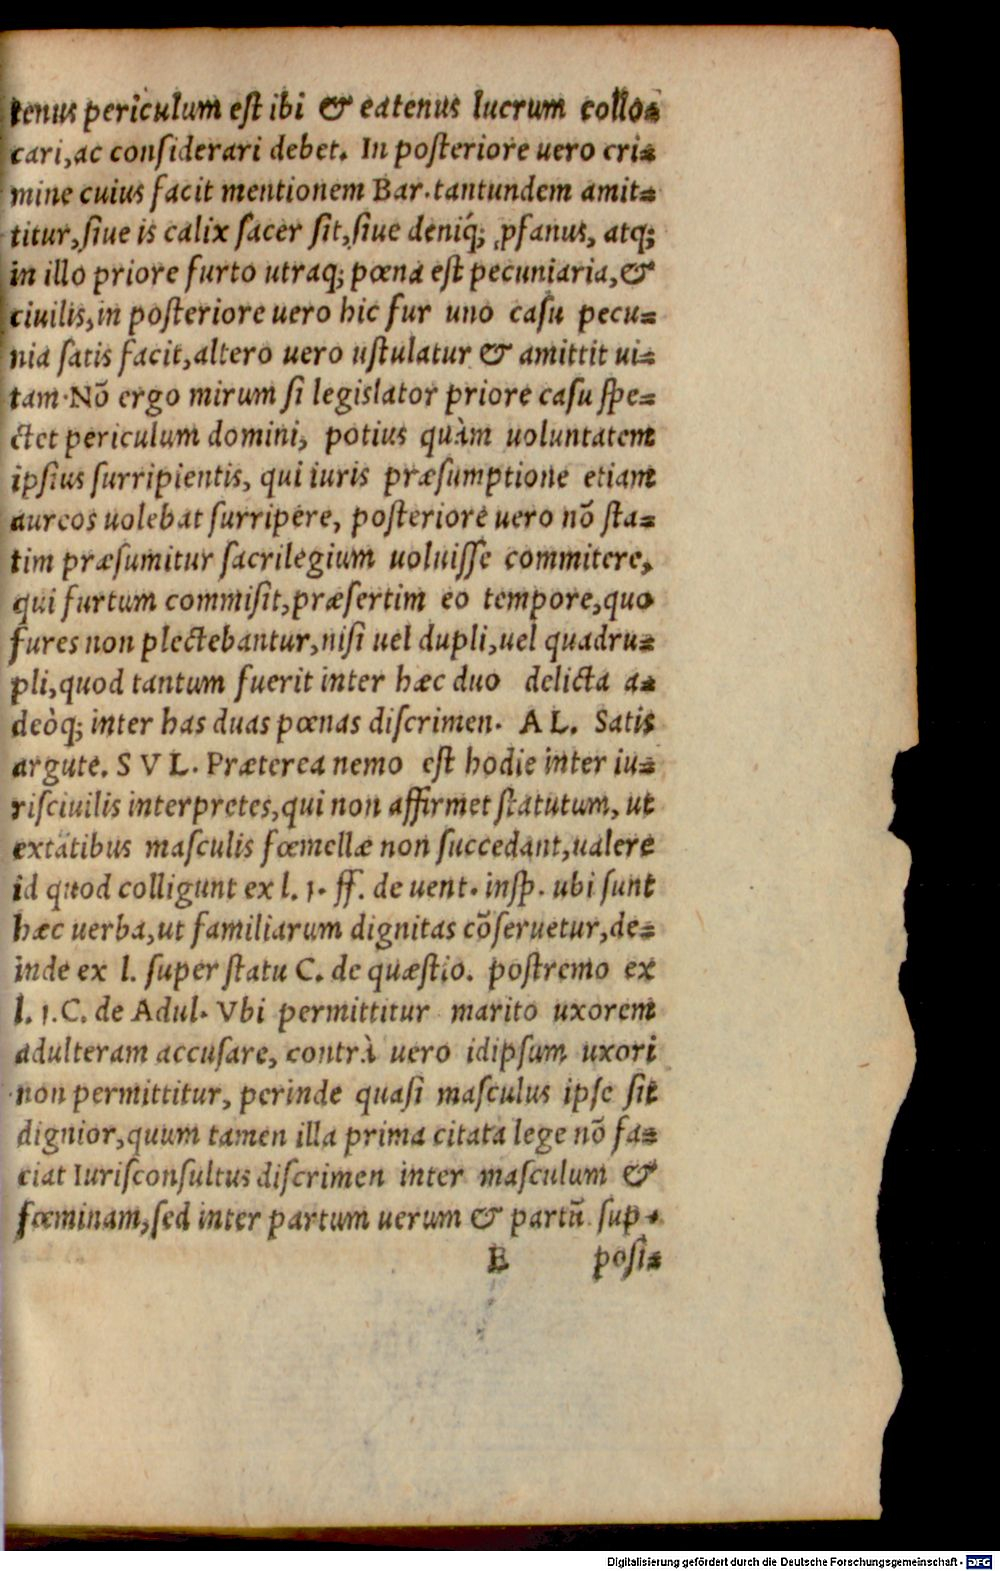 tenus periculum est ibi & eatenus lucrum collo=
cari, ac considerari debet. In posteriore uero cri=
mine cuius facit mentionem Bar. tantundem amit=
titur, siue is calix sacer sit, siue deniq; ꝓfanus, atq;
in illo priore furto utraq; pœna est pecuniaria, &
ciuilis, in posteriore uero hic fur uno casu pecu=
nia satis facit, altero uero ustulatur & amittit ui=
tam. Nō ergo mirum si legislator priore casu spe=
ctet periculum domini, potius quàm uoluntatem
ipsius surripientis, qui iuris præsumptione etiam
aureos uolebat surripere, posteriore uero nō sta=
tim præsumitur sacrilegium uoluisse commitere,
qui furtum commisit, præsertim eo tempore, quo
fures non plectebantur, nisi uel dupli, uel quadru=
pli, quod tantum fuerit inter hæc duo delicta a=
deòq; inter has duas pœnas discrimen. AL. Satis
argute. SVL. Præterea nemo est hodie inter iu=
risciuilis interpretes, qui non affirmet statutum, ut
extātibus masculis fœmellæ non succedant, ualere
id quod colligunt ex l. 1. ff. de uent. insp. ubi sunt
hæc uerba, ut familiarum dignitas cōseruetur, de=
inde ex l. super statu C. de quæstio. postremo ex
l. 1. C. de Adul. Vbi permittitur marito uxorem
adulteram accusare, contrà uero idipsum uxori
non permittitur, perinde quasi masculus ipse sit
dignior, quum tamen illa prima citata lege nō fa=
ciat Iurisconsultus discrimen inter masculum &
fœminam, sed inter partum uerum & partū sup=
B posi=
Digitalisierung gefördert durch die Deutsche Forschungsgemeinschaft - DFG